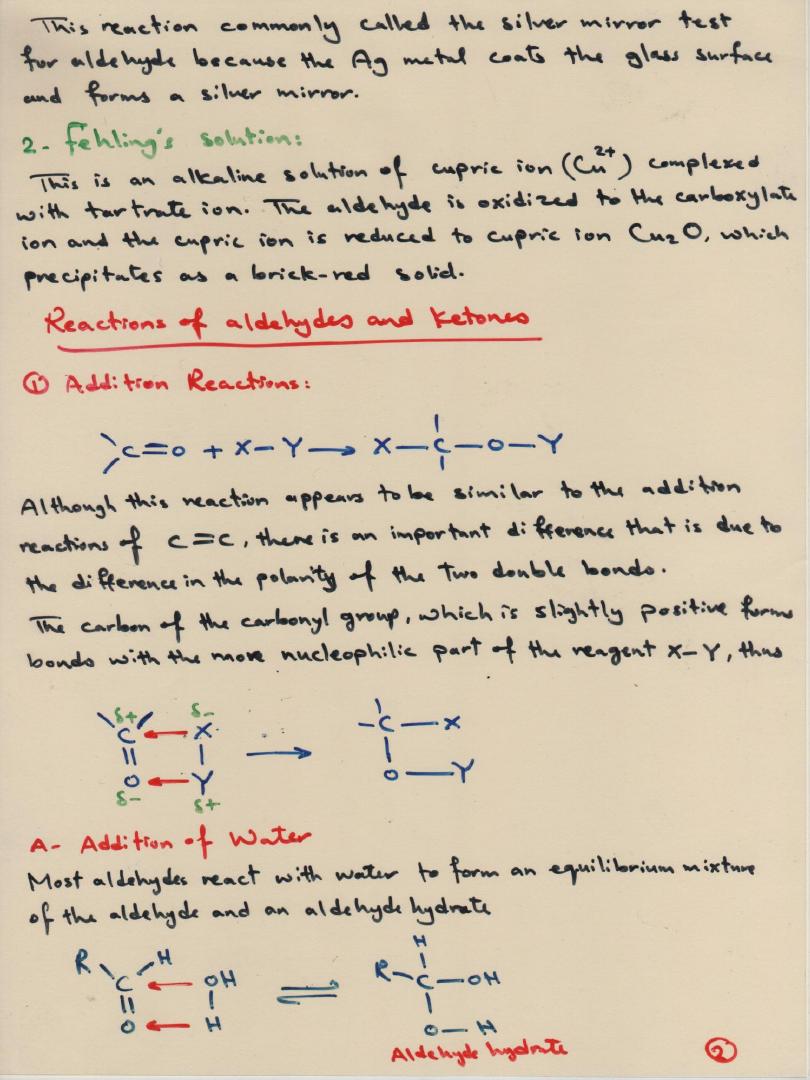 This reaction commonly called the silver mirror test
for aldehyde because the Ag metal coats the glass surface
and forms a silver mirror.
2- Fehling's solution:
This is an alkaline solution of cupric ion (Cu2+) complexed
with tartrate ion. The aldehyde is oxidized to the carboxylate
ion and the cupric ion is reduced to cupric ion Cu2O, which
precipitates as a brick-red solid.
Reactions of aldehydes and Ketones
① Addition Reactions:
C=O + X—Y → X—C—O—Y
Although this reaction appears to be similar to the addition
reactions of C=C, there is an important difference that is due to
the difference in the polarity of the two double bonds.
The carbon of the carbonyl group, which is slightly positive forms
bonds with the more nucleophilic part of the reagent X-Y, thus
δ+ δ-
C ← X → —C—X
O ← Y O—Y
δ- δ+
A- Addition of Water
Most aldehydes react with water to form an equilibrium mixture
of the aldehyde and an aldehyde hydrate
R H H
C ← OH ⇌ R—C—OH
O ← H O—H
Aldehyde hydrate ②